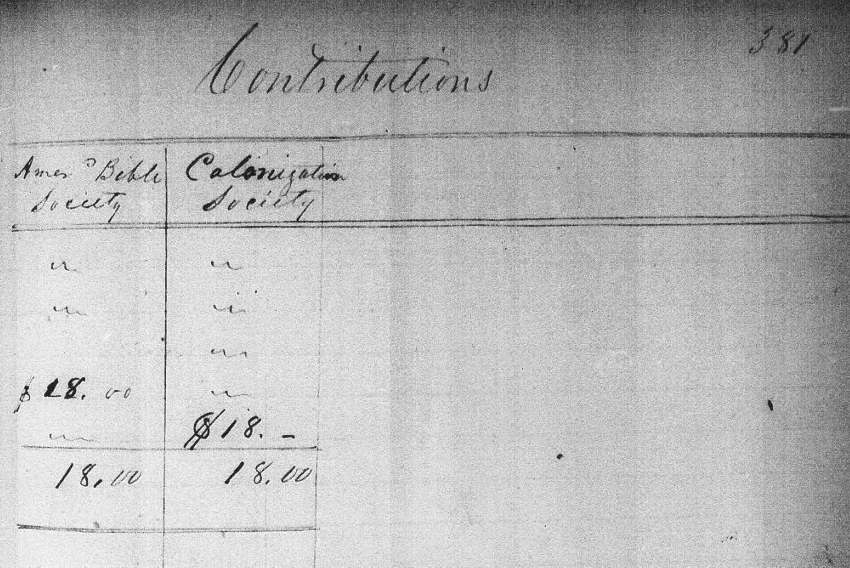 381
Contributions
Amern Bible Colonization
Society Society
" "
" "
"
$18.00 "
" $18. –
18.00 18.00